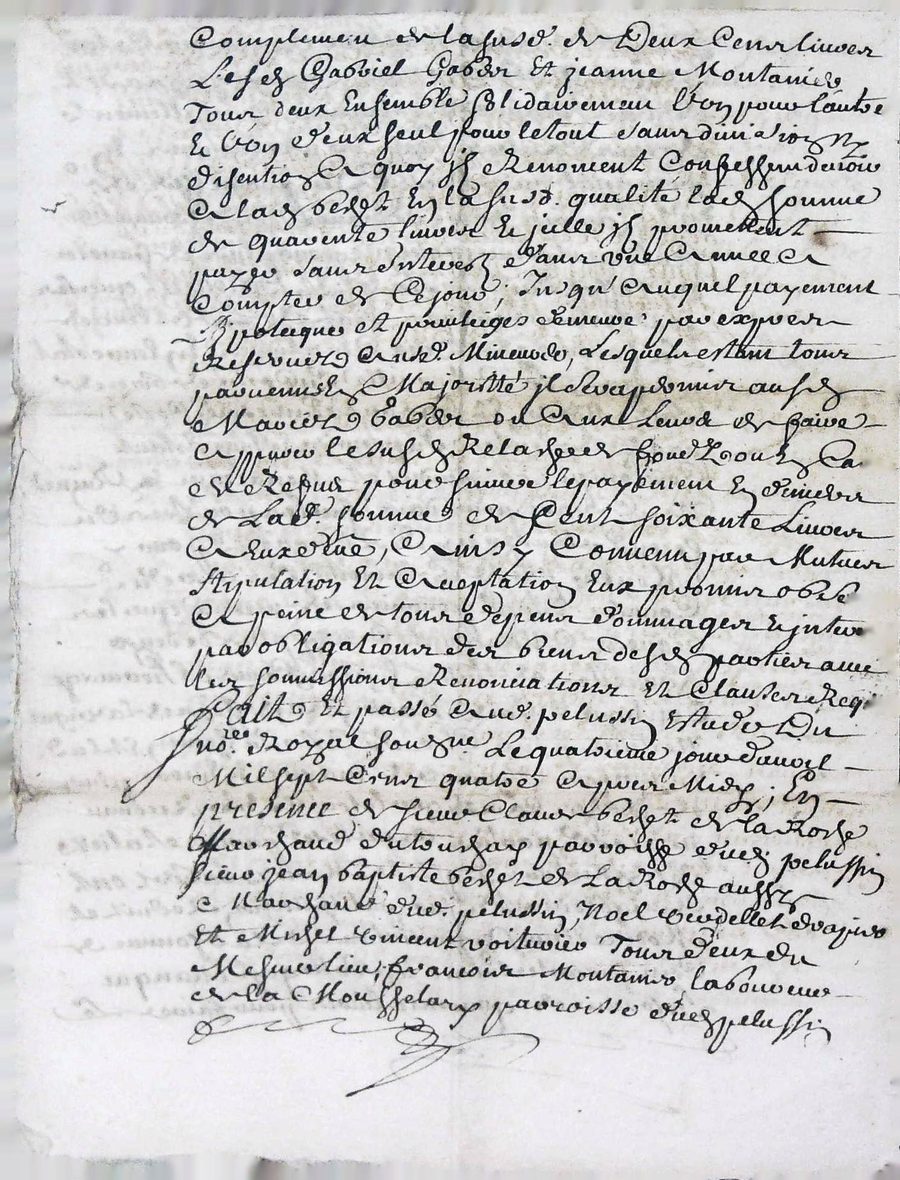 Complement de la susd. de Deux Cens livres
Lesd Gabriel Gabert Et jeanne Montanier
Tous deux Ensemble solidairement L'un pour l'autre
Et L'un d'eux seul pour le tout sans division Ny
disention A quoy ils Renoncent Confessent devoir
A lad berlhet En la susd. qualité lad somme
de quarente livres Et jcelle jls promettent
payer sans Interest dans une Annee A
Compter de Ce jour, Jusqu'auquel payement
Hypotecque et privileges demeure par expres
Reservés Ausd. Mineurs, Lesquels estant tous
parvenus En Majorité jl sera permis ausd
Mariés gabert ou Aux Leurs de faire
Appreuver le susd Relaschement de fond Et ou En Cas
de Refus poursuivre le payement En deniers
de Lad. somme de Cent soixante Livres
A Eux deue, Ainsy Convenu par Mutues
stipulation Et Acceptation Eux promis obse
A peine de tous depens dommages Et jnter
par obligations des biens desd parties avec
les sommissions Renonciations Et Clauses Req
fait Et passé Aud. pelussin Estude Du
No.re Royal soussigne Le quatrieme jour d'avril
Mil sept Cens quatre Apres Midy; En
presence de sieur Claude berlhet de la Roche
Marchand du parroisse dud pelussin
sieur jean baptiste berlhet de La Roche aussy
Marchand dud. pelussin, Noel drapier
Et Michel vincent voiturier Tous deux du
Mesme lieu, françois Montanier laboureur
de la parroisse dud pelussin